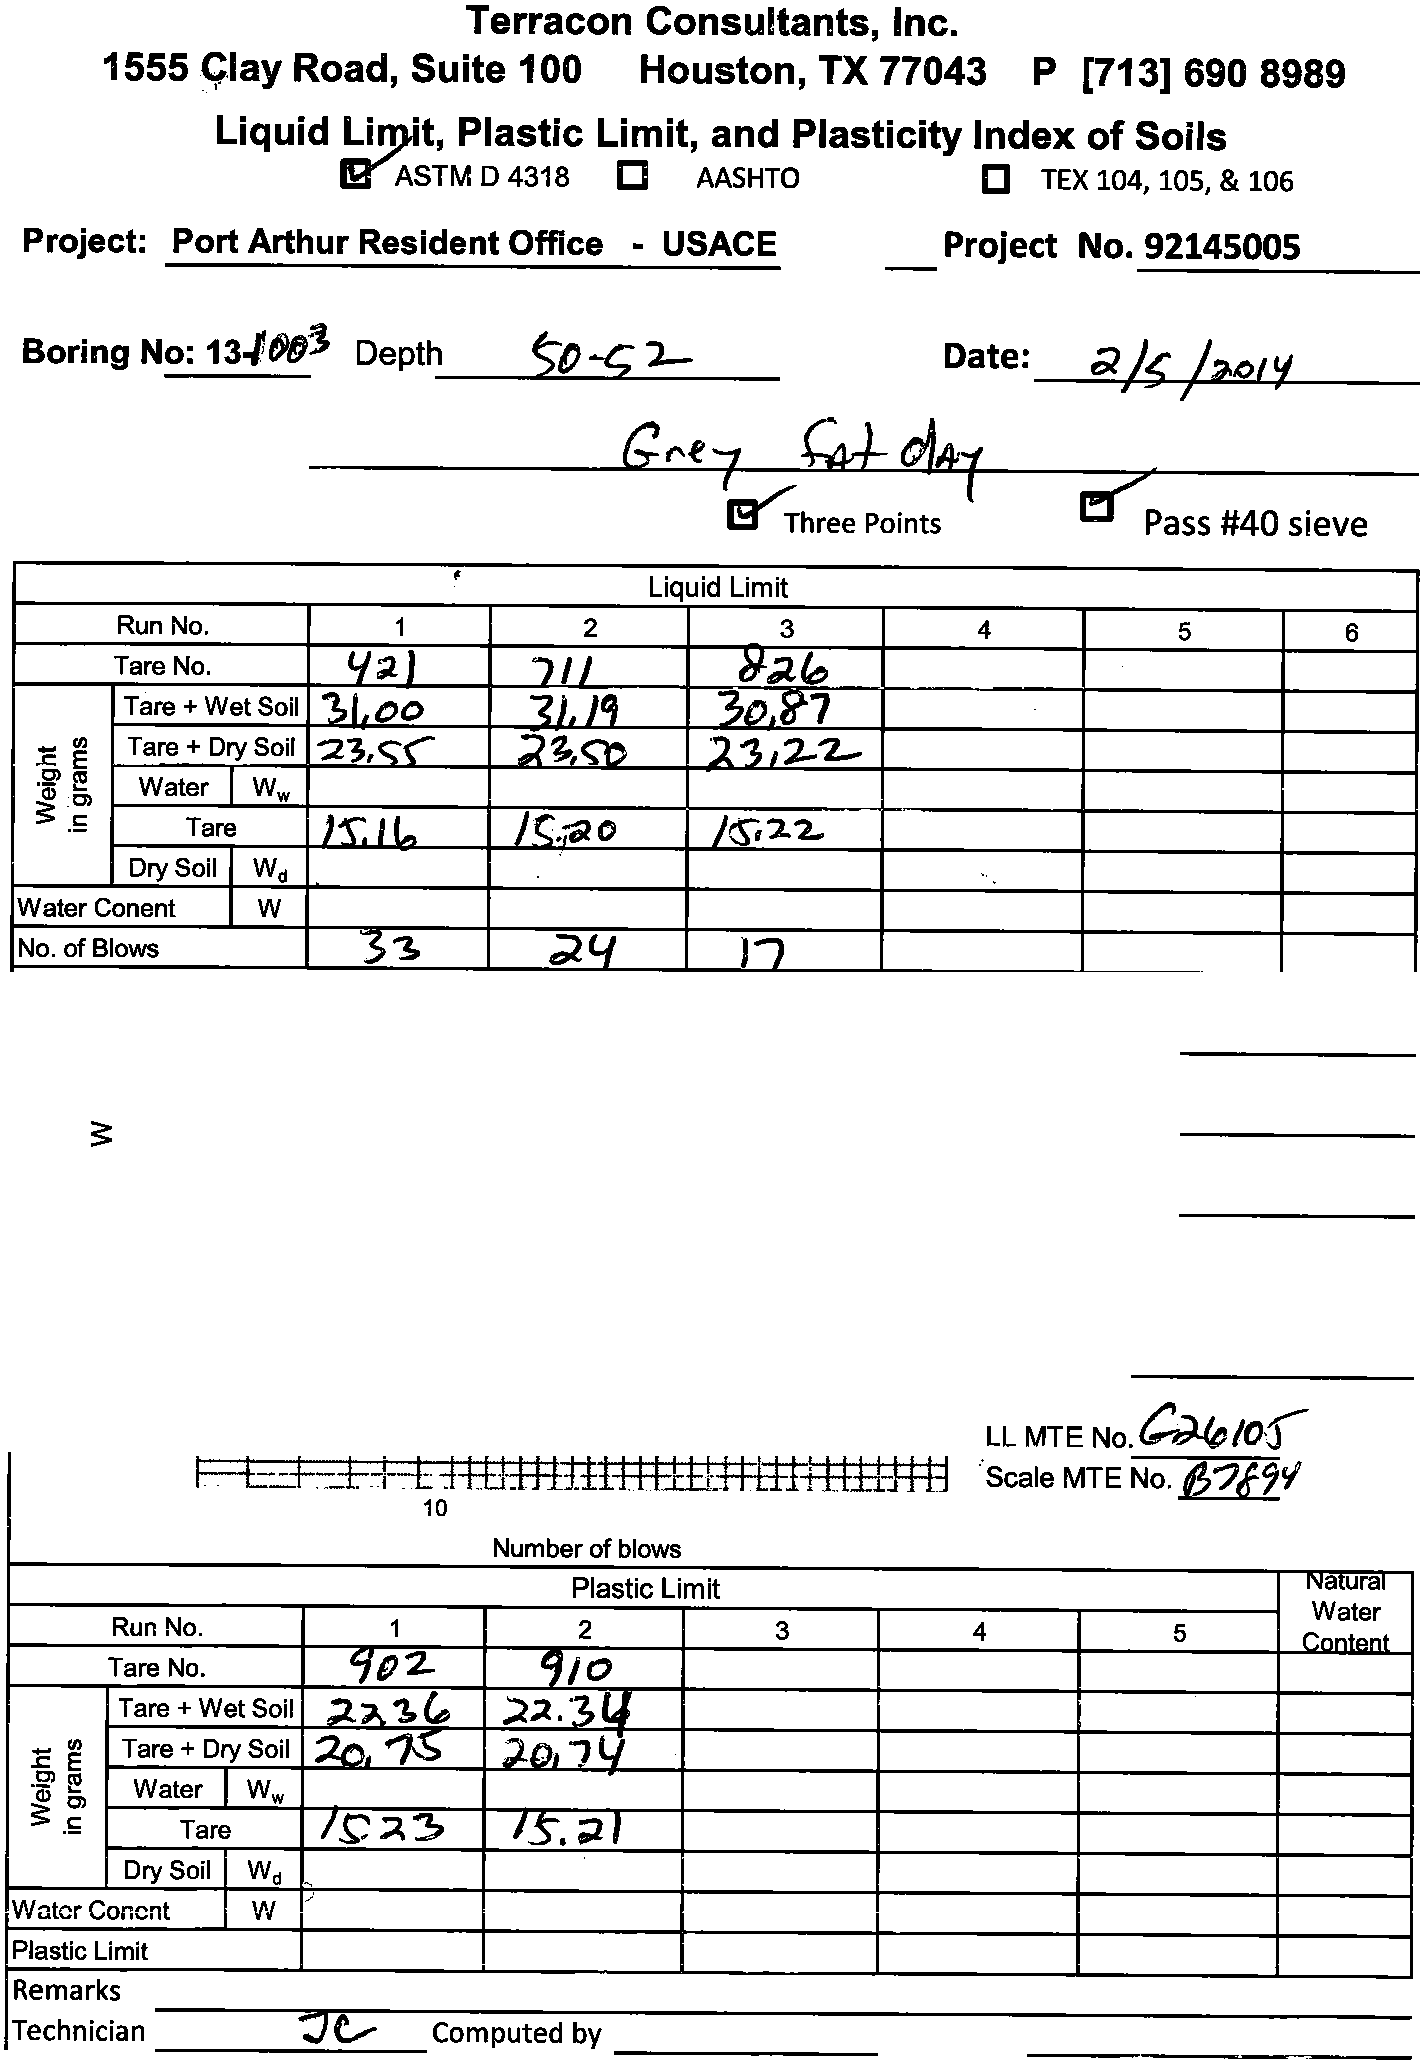 Terracon Consultants, Inc.
1555 Clay Road, Suite 100 Houston, TX 77043 P [713] 690 8989
Liquid Limit, Plastic Limit, and Plasticity Index of Soils
ASTM D 4318 AASHTO TEX 104, 105, & 106
Project: Port Arthur Resident Office - USACE Project No. 92145005
Boring No: 13-1003 Depth 50-52 Date: 2/5/2014
Grey fAt clAy
Three Points Pass #40 sieve
Liquid Limit
Run No. 1 2 3 4 5 6
Tare No. 421 711 826
Weight in grams
Tare + Wet Soil 31,00 31,19 30,87
Tare + Dry Soil 23,55 23,50 23,22
Water Ww
Tare 15.16 15.20 15.22
Dry Soil Wd
Water Conent W
No. of Blows 33 24 17
W
LL MTE No. G26105
Scale MTE No. B7894
10
Number of blows
Plastic Limit Natural Water Content
Run No. 1 2 3 4 5
Tare No. 902 910
Weight in grams
Tare + Wet Soil 22.36 22.34
Tare + Dry Soil 20,75 20,74
Water Ww
Tare 15.23 15.21
Dry Soil Wd
Water Conent W
Plastic Limit
Remarks
Technician JC Computed by